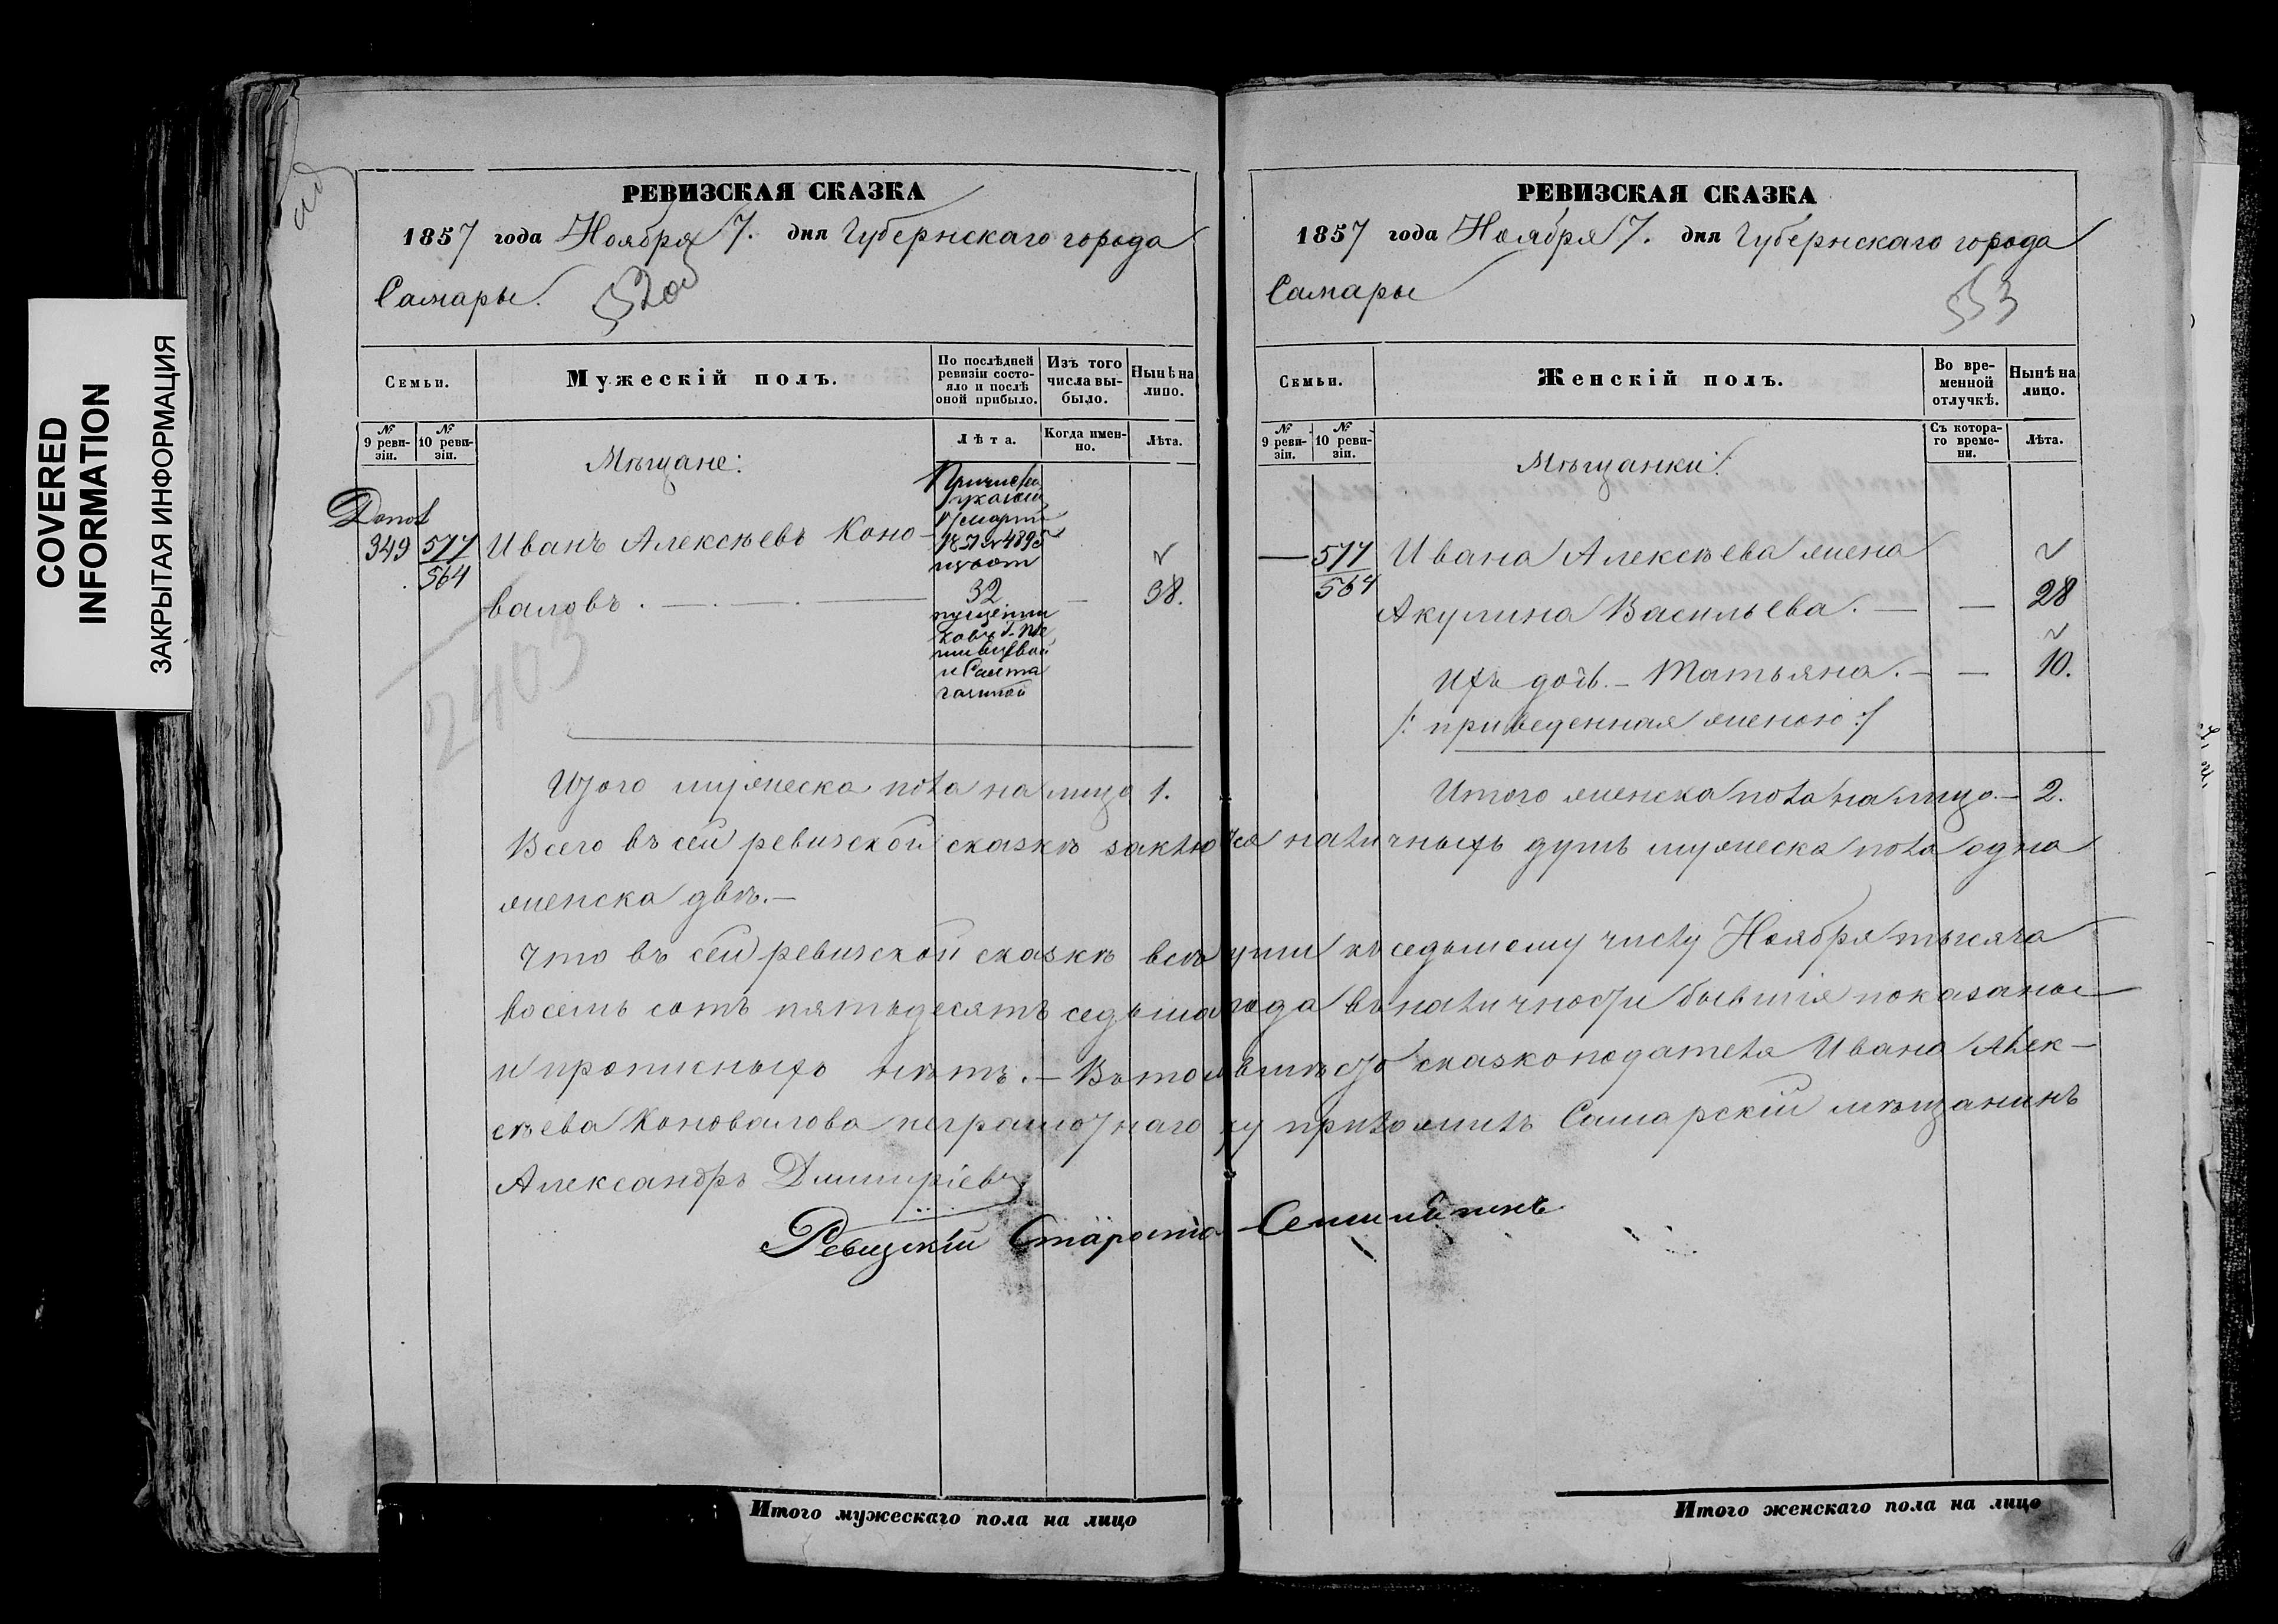 COVERED
INFORMATION
ЗАКРЫТАЯ ИНФОРМАЦИЯ
РЕВИЗСКАЯ СКАЗКА
1857 года Ноября 7. дня Губернскаго города
Самары.
Семьи.
Мужескій полъ.
По послѣдней
ревизіи состо-
яло и послѣ
оной прибыло.
Изъ того
числа вы-
было.
Нынѣ на
лицо.
№
9 реви-
зіи.
№
10 реви-
зіи.
Лѣта.
Когда имен-
но.
Лѣта.
Мѣщане:
349 577 Иванъ Алексѣевъ Коно-
564
валовъ. 32 38.
2403
Итого мужеска пола на лицо 1.
РЕВИЗСКАЯ СКАЗКА
1857 года Ноября 7. дня Губернскаго города
Самары
553
Семьи.
Женскій полъ.
Во вре-
менной
отлучкѣ.
Нынѣ на
лицо.
№
9 реви-
зіи.
№
10 реви-
зіи.
Съ котора-
го време-
ни.
Лѣта.
Мѣщанки:
— 577 Ивана Алексѣева жена
564
Акулина Васильева. — — 28
Ихъ дочь. — Татьяна. — — 10.
/: приведенная женою :/
Итого женска пола на лицо. — 2.
Всего въ сей ревизской сказкѣ заключ-ся наличныхъ душъ мужеска пола одна
женска двѣ. —
Что въ сей ревизской сказкѣ всѣ души къ седьмому числу Ноября тысяча
восемь сотъ пятьдесятъ седьма года въ наличности бывшія показаны
и прописныхъ нѣтъ. — Въ томъ вмѣсто сказкоподателя Ивана Алек-
сѣева Коновалова неграмотнаго руку приложилъ Самарскій мѣщанинъ
Александръ Дмитріевъ
Ревизскій Староста
Итого мужескаго пола на лицо
Итого женскаго пола на лицо